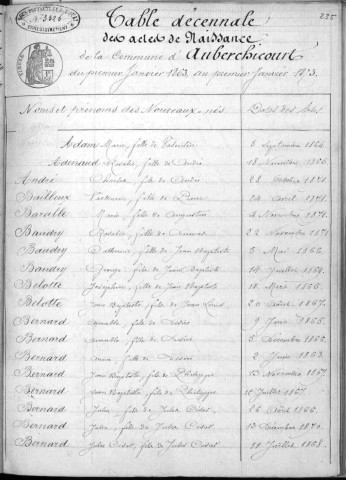 235
Table décennale
des actes de Naissance
de la Commune d'Auberchicourt
du premier Janvier 1863 au premier Janvier 1873.
Noms et prénoms des Nouveaux-nés Dates des
Adam Marie, fille de 6 Septembre 1864
Rosalie, fille de André 18 Novembre 1866
André Charles, fils de 28 1871
Bailleux fils de Pierre 24 Avril 1871
Baralle Marie, fille de Augustin 4 Novembre 1871
Baudry Rosalie, fille de 22 Novembre 1871
Baudry fille de Jean Baptiste 5 Mai 1866
Baudry George, fils de Jean Baptiste 14 Juillet 1864
Belotte Joséphine, fille de Jean Baptiste 18 Mars 1866
Belotte Jean Baptiste, fils de Jean Louis 20 Août 1867
Bernard fille de Désiré 9 Juin 1865
Bernard fille de Désiré 5 Décembre 1866
Bernard fille de Désiré 2 Juin 1863
Bernard Jean Baptiste, fils de Philippe 13 Novembre 1867
Bernard Jean Baptiste, fils de Philippe Juillet 1867
Bernard Jules, fils de Jules César 26 Août 1866
Bernard Julie, fille de Jules César 13 Décembre 1870
Bernard Jules César, fils de Jules César Juillet 1868